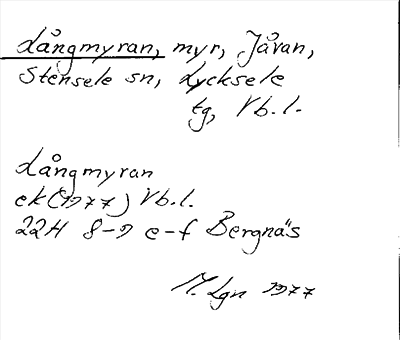 Långmyran, myr, Jåvan,
Stensele sn, Lycksele
tg, Vb.l.
Långmyran
ek (1977) Vb.l.
22H 8-9 e-f Bergnäs
M. Lgn 1977